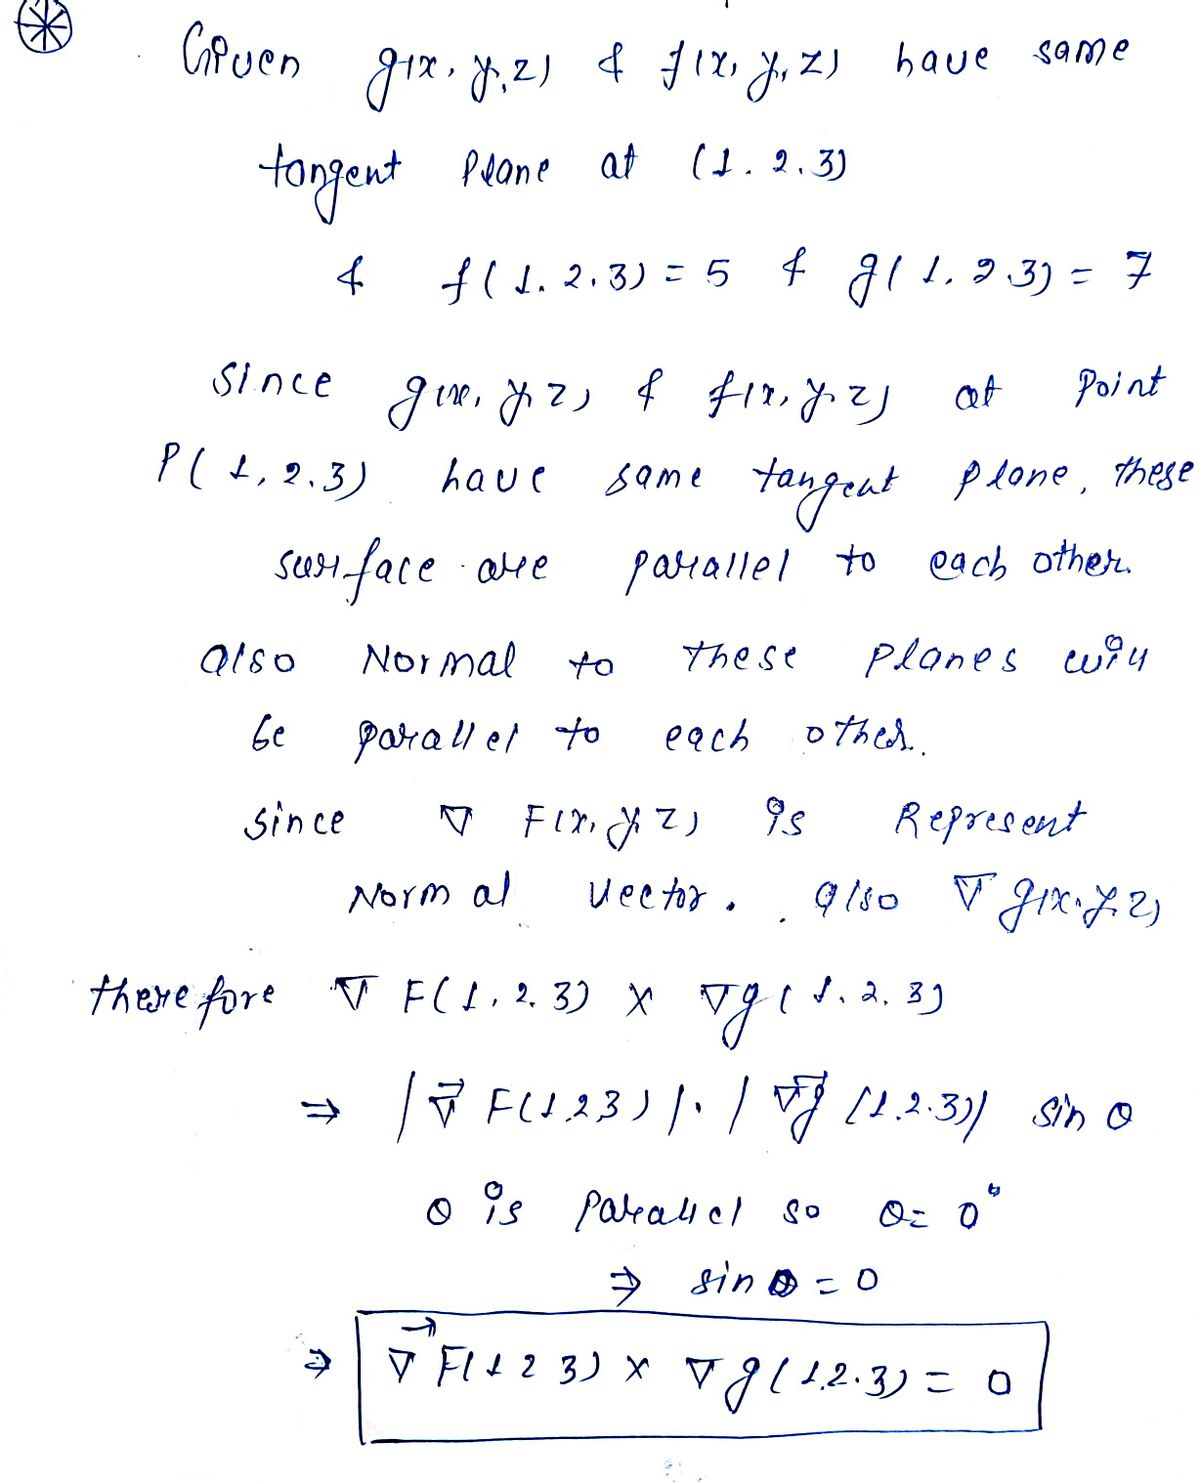 Given g(x, y, z) & f(x, y, z) have same
tangent Plane at (1. 2. 3)
& f(1. 2. 3) = 5 & g(1. 2 3) = 7
Since g(x, y z) & f(x, y. z) at Point
P(1, 2. 3) have same tangent plane, these
surface are parallel to each other.
also Normal to these planes will
be parallel to each other.
since ∇ F(x, y z) is Represent
Normal Vector. also ∇ g(x. y. z)
therefore ∇ F(1, 2. 3) × ∇g(1. 2. 3)
⇒ |∇⃗ F(1,2,3)|. |∇g⃗ (1.2.3)| sin θ
θ is Parallel so θ = 0°
⇒ sin θ = 0
⇒ ∇⃗ F(1 2 3) × ∇g(1,2.3) = 0